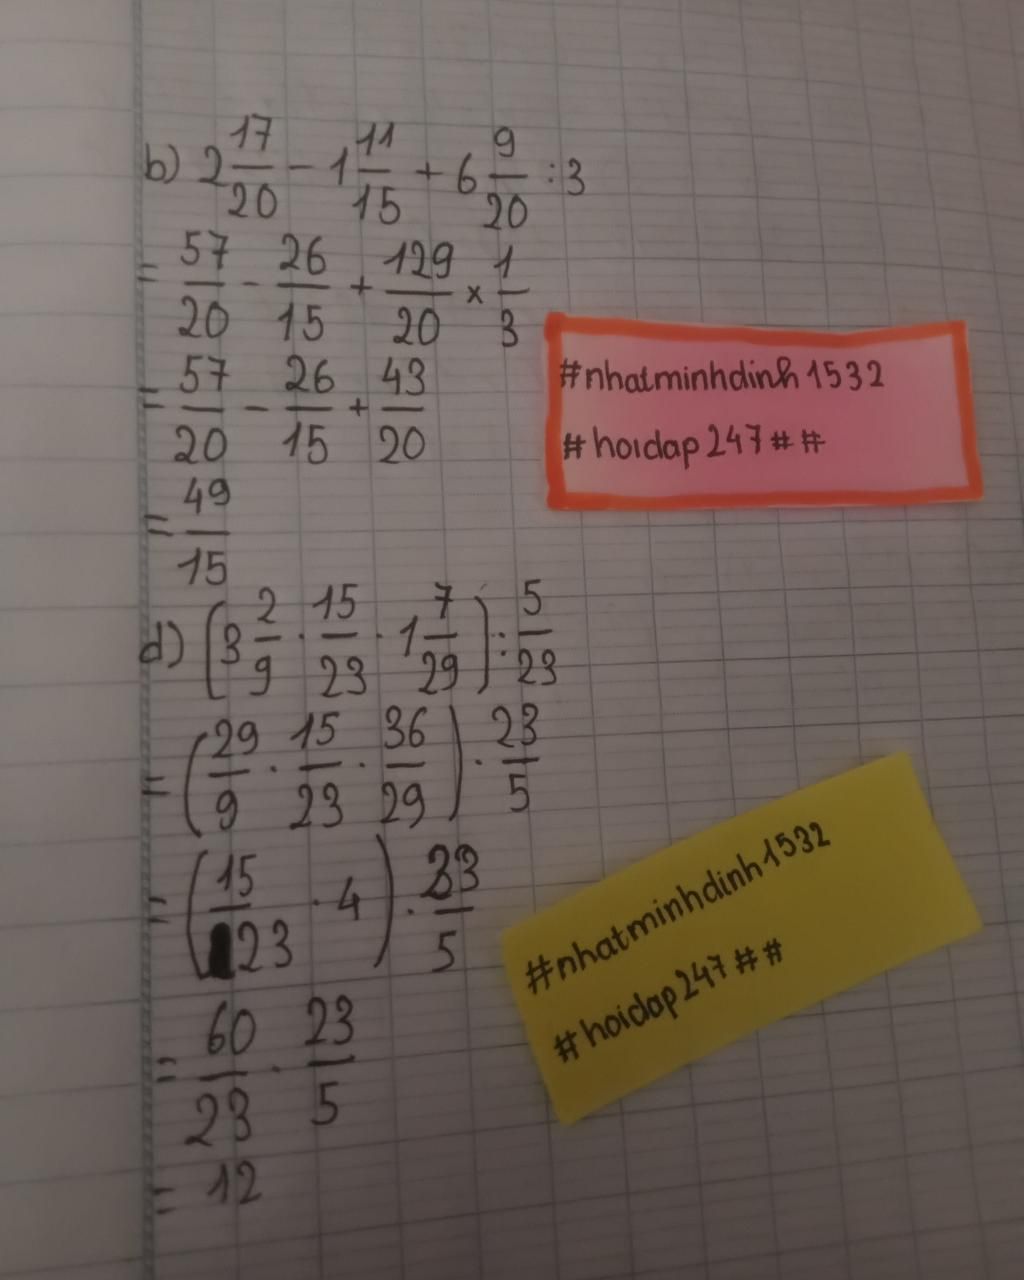 b) 2 17/20 - 1 11/15 + 6 9/20 : 3
= 57/20 - 26/15 + 129/20 × 1/3
= 57/20 - 26/15 + 43/20
= 49/15
#nhatminhdinh1532
#hoidap247##
d) (3 2/9 . 15/23 . 1 7/29) : 5/23
= (29/9 . 15/23 . 36/29) . 23/5
= (15/23 . 4) . 23/5
= 60/23 . 23/5
= 12
#nhatminhdinh1532
#hoidap247##